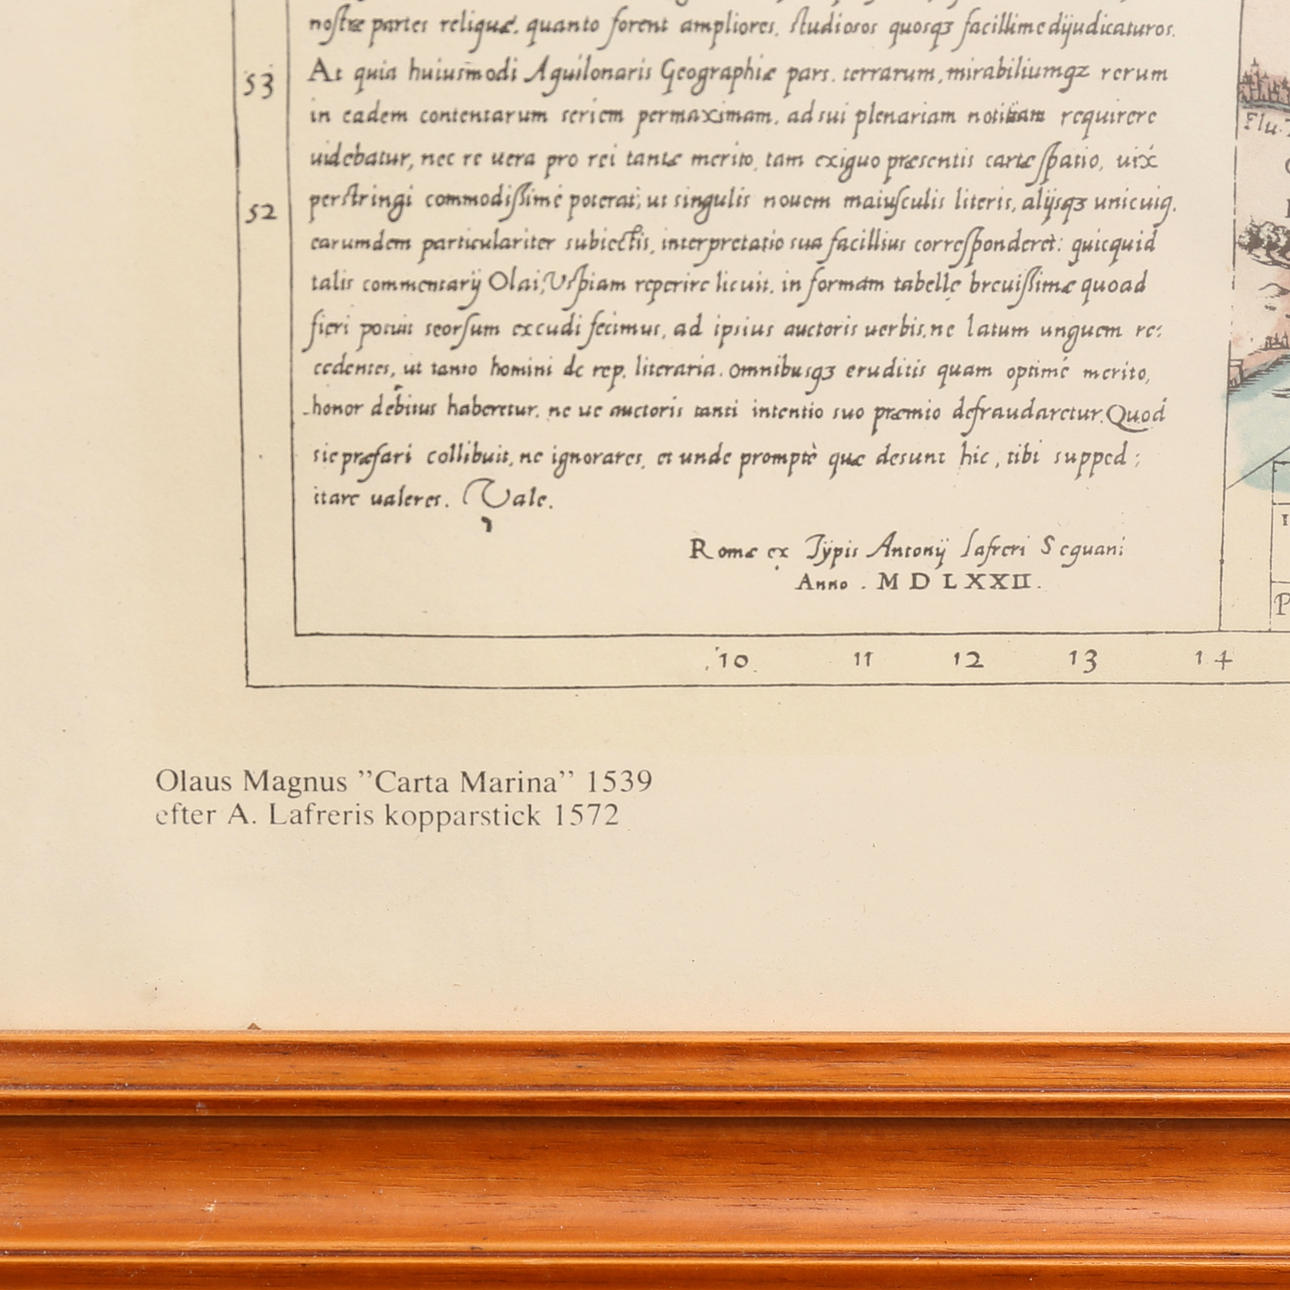 nostræ partes reliquæ, quanto forent ampliores, studiosos quosqз facillime dijudicaturos.
53
At quia huiusmodi Aquilonaris Geographiæ pars, terrarum, mirabiliumqz rerum
in eadem contentarum seriem permaximam, ad sui plenariam notitiam requirere
uidebatur, nec re uera pro rei tantæ merito, tam exiguo præsentis cartæ spatio, uix
52
perstringi commodissimè poterat; ut singulis nouem maiusculis literis, alijsqз unicuiq.
earumdem particulariter subiectis, interpretatio sua facillius corresponderet: quicquid
talis commentarij Olai, Uspiam reperire licuit, in formam tabellę breuissimæ quoad
fieri potuit seorsum excudi fecimus, ad ipsius auctoris uerbis, ne latum unguem re:
cedentes, ut tanto homini de rep. literaria, omnibusqз eruditis quam optimè merito,
honor debitus haberetur, ne ue auctoris tanti intentio suo præmio defraudaretur. Quod
sic præfari collibuit, ne ignorares, et unde promptè quæ desunt hic, tibi supped;
itare ualeres. Vale.
Flu.
Romæ ex Typis Antonij Lafreri Sequani
Anno . M D LXXII.
P
10 11 12 13 14
Olaus Magnus ”Carta Marina” 1539
efter A. Lafreris kopparstick 1572